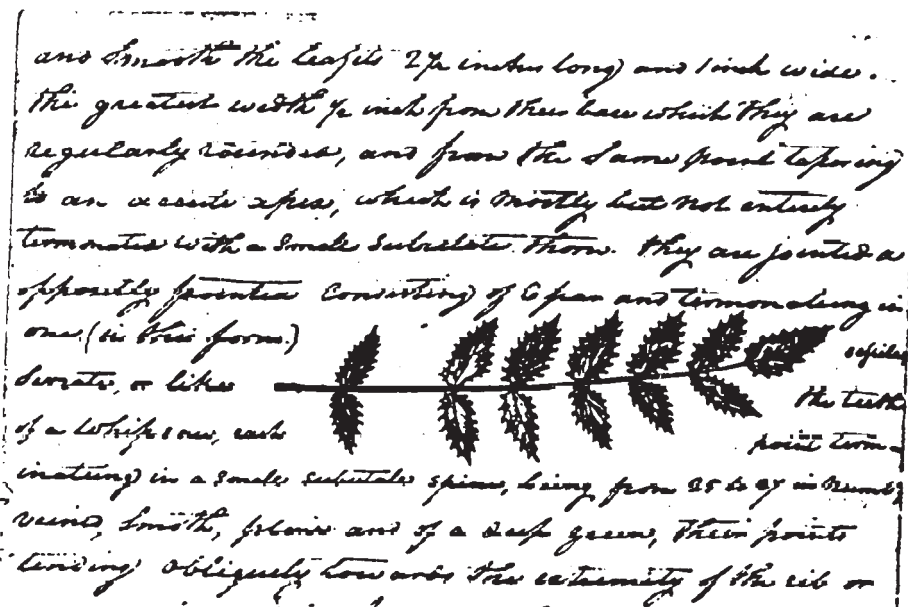 and Smooth the leafits 2½ inches long and 1 inch wide.
the greatest width ½ inch from their base which they are
regularly rounded, and from the Same point tapering
to an accute apex, which is mostly but not entirely
termonated with a Small Subulate thorn. they are jointed &
oppositly pointed Consisting of 6 par and termonateing in
one (in this form.)
Serrate, or like the teeth
of a whipsaw, each point term-
inateing in a Small subulate spine, being from 25 to 27 in Numb
veined, Smoth, plane and of a deep green, their points
tending obliquely towards the extremity of the rib or